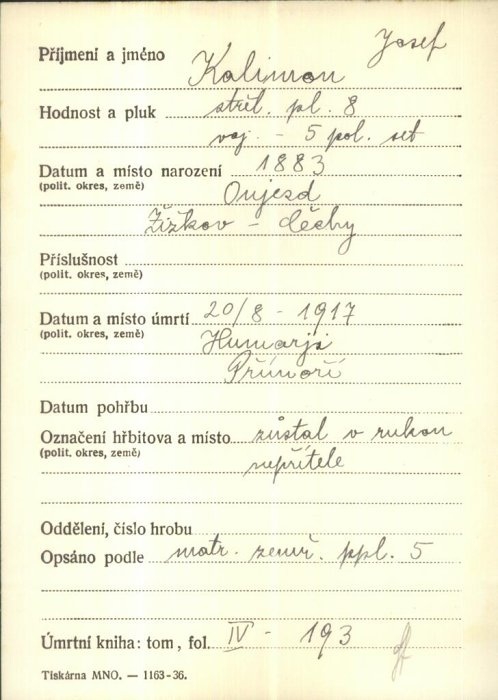 Josef
Příjmení a jméno Kalimon
Hodnost a pluk střel. pl. 8
voj. - 5 pol. set
Datum a místo narození 1883
(polit. okres, země) Oujezd
Žižkov - Čechy
Příslušnost
(polit. okres, země)
Datum a místo úmrtí 20/8 - 1917
(polit. okres, země) Humarji
Přímoří
Datum pohřbu
Označení hřbitova a místo zůstal v rukou
(polit. okres, země) nepřítele
Oddělení, číslo hrobu
Opsáno podle matr. zemř. ppl. 5
Úmrtní kniha: tom, fol. IV - 193
Tiskárna MNO. — 1163-36.